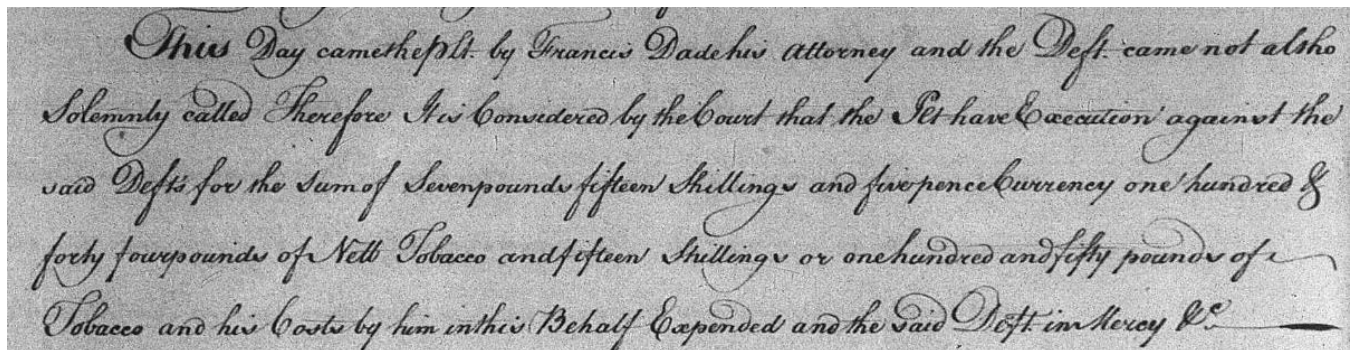 This Day came the Plt. by Francis Dade his Attorney and the Deft. came not altho
Solemnly called Therefore It is Considered by the Court that the Plt have Execution against the
said Defts for the Sum of Seven pounds fifteen Shillings and five pence Currency one hundred &
forty four pounds of Nett Tobacco and fifteen Shillings or one hundred and fifty pounds of
Tobacco and his Costs by him in this Behalf Expended and the said Deft. in Mercy &c.